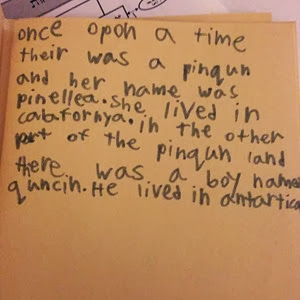 once opon a time
their was a pinqun
and her name was
pinellea. she lived in
calafornya. in the other
prt of the pinqun land
there was a boy named
quncin. He lived in antartica